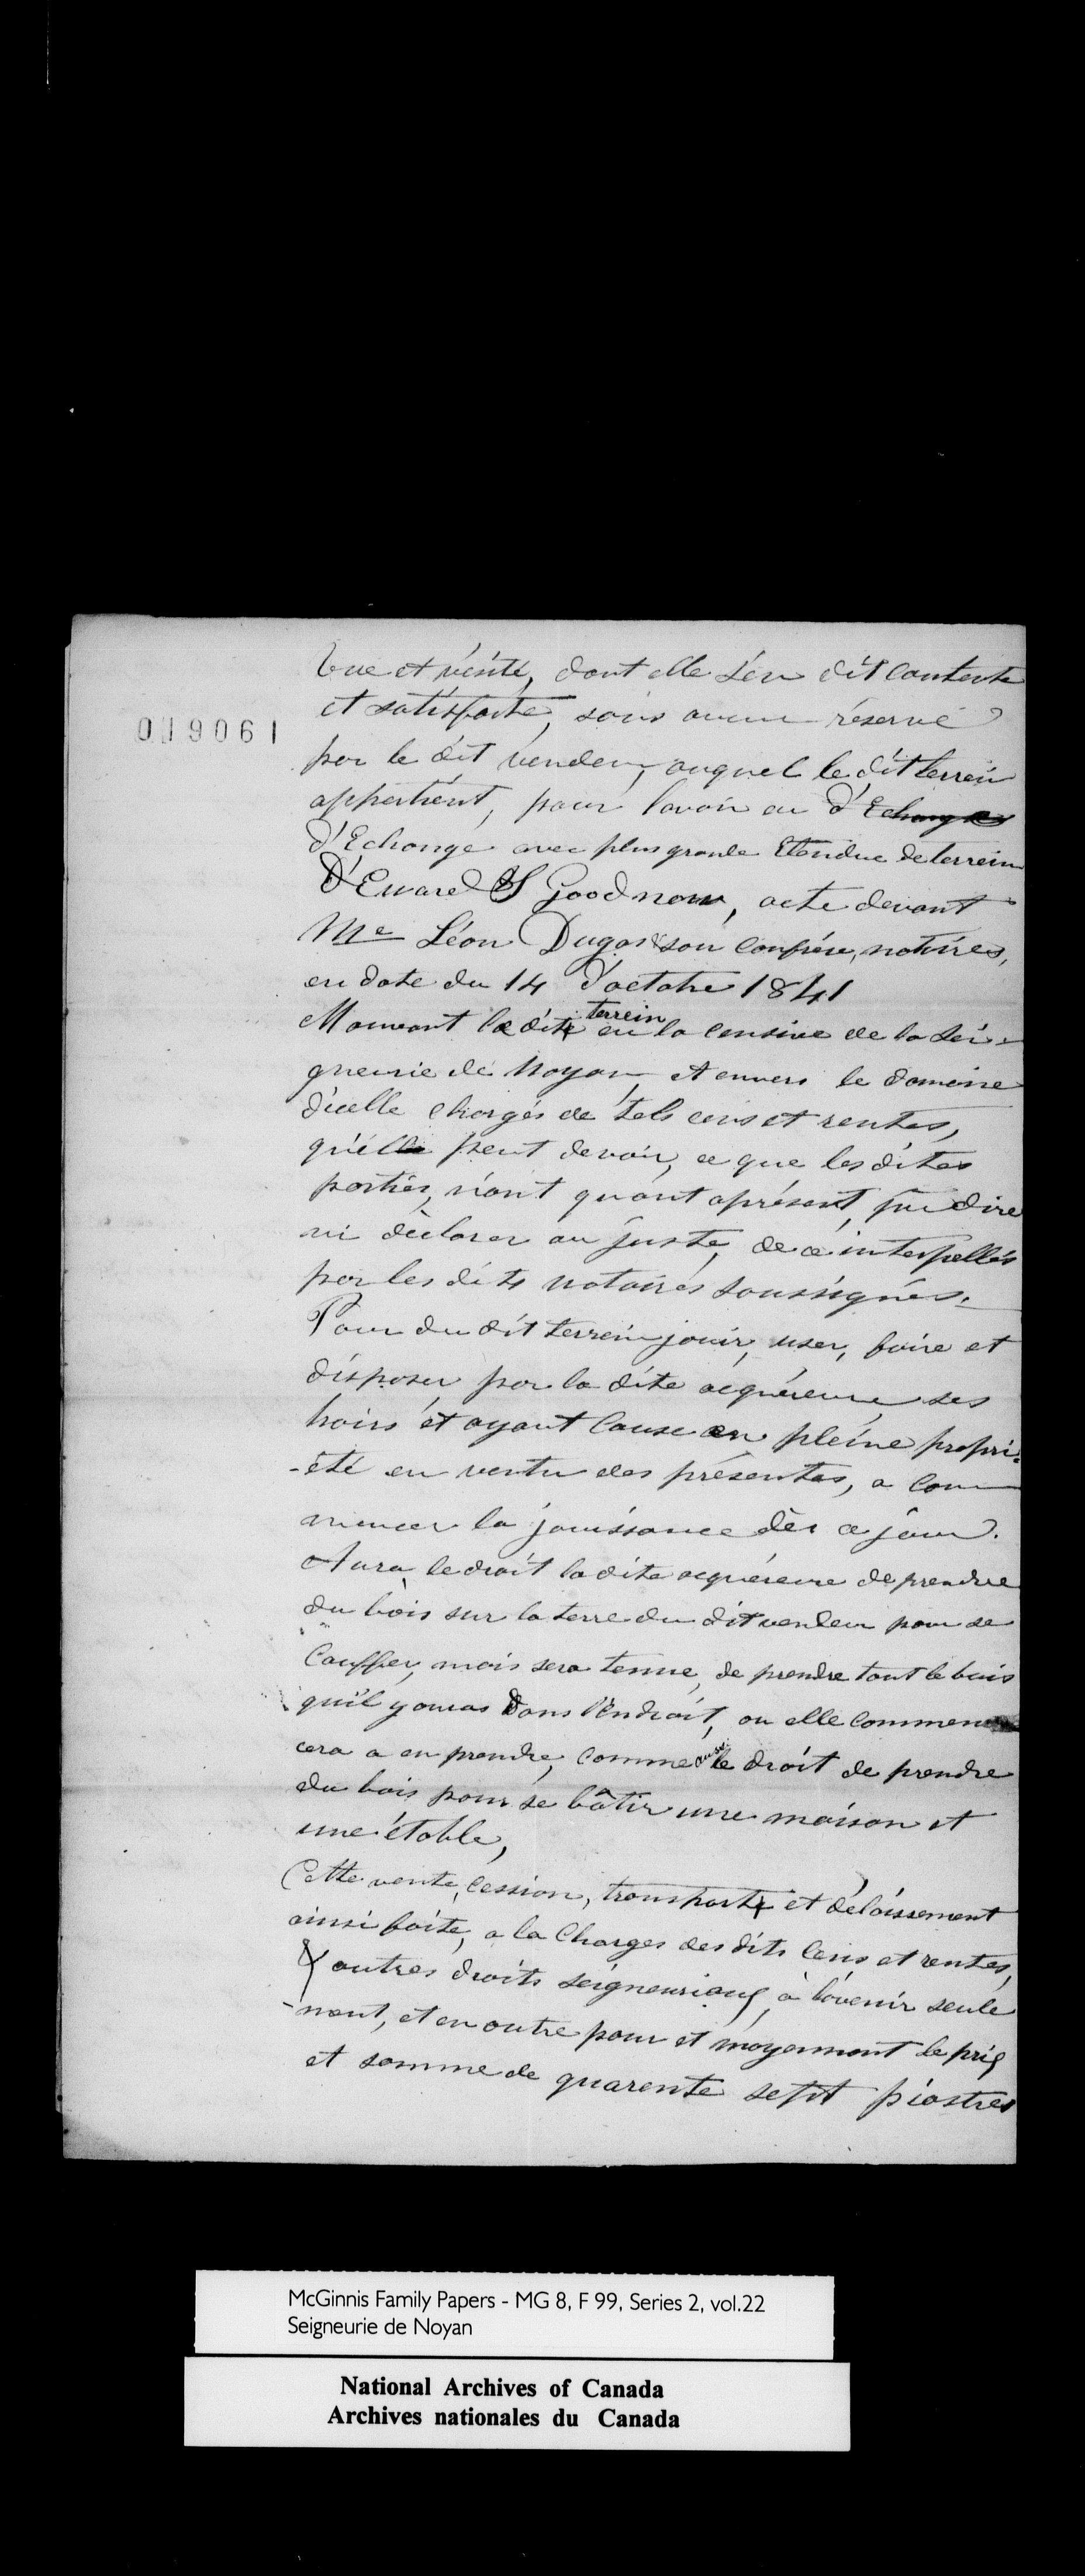 Vue et visité, dont elle s'en dit Contente
et satisfaite, sans aucune réserve
019061
par le dit vendeur, auquel le dit terrein
appartient, pour l'avoir eu d'Echanges
d'Echange avec plus grande Etendue de terrein
D'Euard S Goodnow, acte devant
Me Léon Dugas & son confrère, notaires,
en date du 14 d'octobre 1841
Mouvant le dit terrein en la censive de la Sei-
gneurie de Noyan, et envers le domaine
d'icelle chargés de tels cens et rentes,
qu'elle peut devoir, ce que les dites
parties, n'ont quant aprésent, pu dire
ni déclarer au juste, de ce interpellés
par les dits notaires soussignés.
Pour du dit terrein jouir, user, faire et
disposer par la dite acquéreure ses
hoirs et ayant Cause en pleine propri-
-été en vertu des présentes, a Com
mencer la jouissance dès ce jour.
Aura le droit la dite acquéreure de prendre
du bois sur la terre du dit vendeur pour se
Cauffer, mais sera tenue, de prendre tout le bois
qu'il y auras Dans l'Endroit, ou elle commen
cera a en prendre, comme aussi le droit de prendre
du bois pour se bâtir une maison et
une étable,
Cette vente, Cession, transporte et délaissement
ainsi faite, a la Charges des dits Cens et rentes,
& autres droits seigneuriaux, à l'avenir seule
-ment, et en outre pour et moyennant le prix
et somme de quarente sept piastres
McGinnis Family Papers - MG 8, F 99, Series 2, vol.22
Seigneurie de Noyan
National Archives of Canada
Archives nationales du Canada